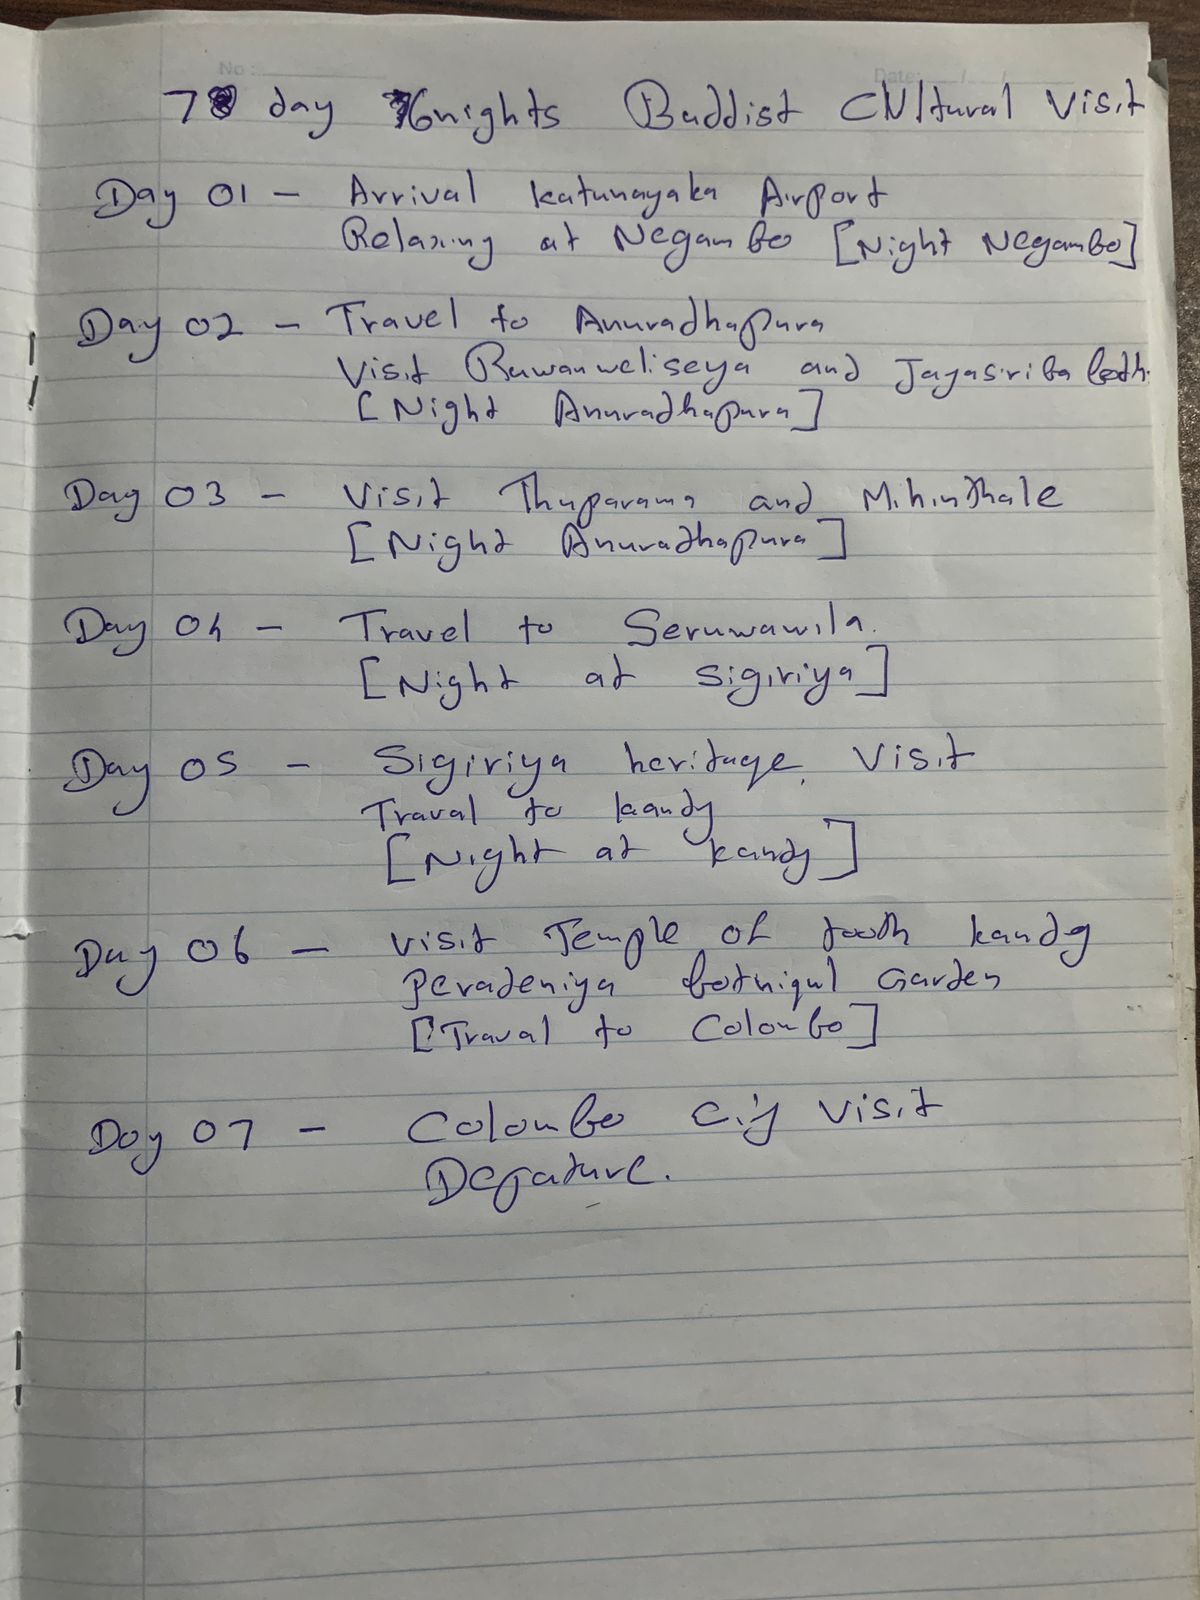 No:
Date: / /
7 day 6nights Buddist Cultural Visit
Day 01 - Arrival Katunayaka Airport
Relaxing at Negambo [Night Negambo]
Day 02 - Travel to Anuradhapura
Visit Ruwanweliseya and Jayasiri
[Night Anuradhapura]
Day 03 - Visit Thuparama and Mihinthale
[Night Anuradhapura]
Day 04 - Travel to Seruwawila.
[Night at Sigiriya]
Day 05 - Sigiriya heritage Visit
Traval to kandy
[Night at kandy]
Day 06 - Visit Temple of tooth kandy
Peradeniya Garden
[Traval to Colombo]
Day 07 - Colombo City Visit
Depature.